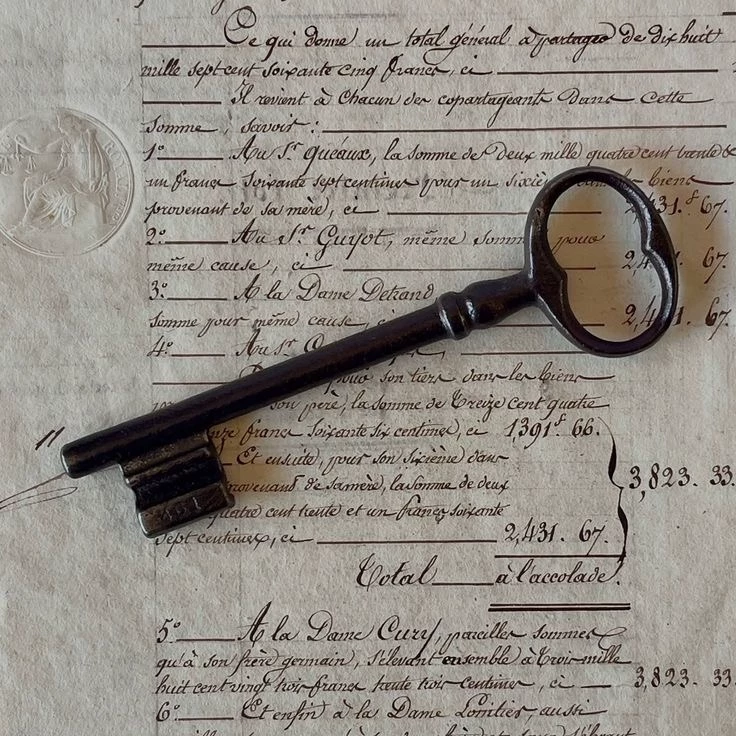 Ce qui donne un total général à partager de dix huit
mille sept cent soixante cinq francs, ci
Il revient à Chacun des copartageants dans cette
somme, savoir :
1º Au Sr. Quéaux, la somme de deux mille quatre cent trente &
un francs soixante sept centimes pour un sixième dans les biens
provenant de sa mère, ci 2,431.f 67.
2º Au Sr. Guyot, même somme pour
même cause, ci 2,431. 67.
3º A la Dame Detrand
somme pour même cause, ci 2,431. 67.
4º Au Sr. C
pour son tiers dans les biens
son père, la somme de Treize cent quatre
onze francs soixante six centimes, ci 1,391f 66.
Et ensuite, pour son sixième dans
provenant de sa mère, la somme de deux 3,823. 33.
quatre cent trente et un francs soixante
sept centimes, ci 2,431. 67.
Total à l'accolade.
5º A la Dame Cury, pareilles sommes
qu'à son frère germain, s'élevant ensemble à Trois mille
huit cent vingt trois francs trente trois centimes, ci 3,823. 33.
6º Et enfin à la Dame aussi
11